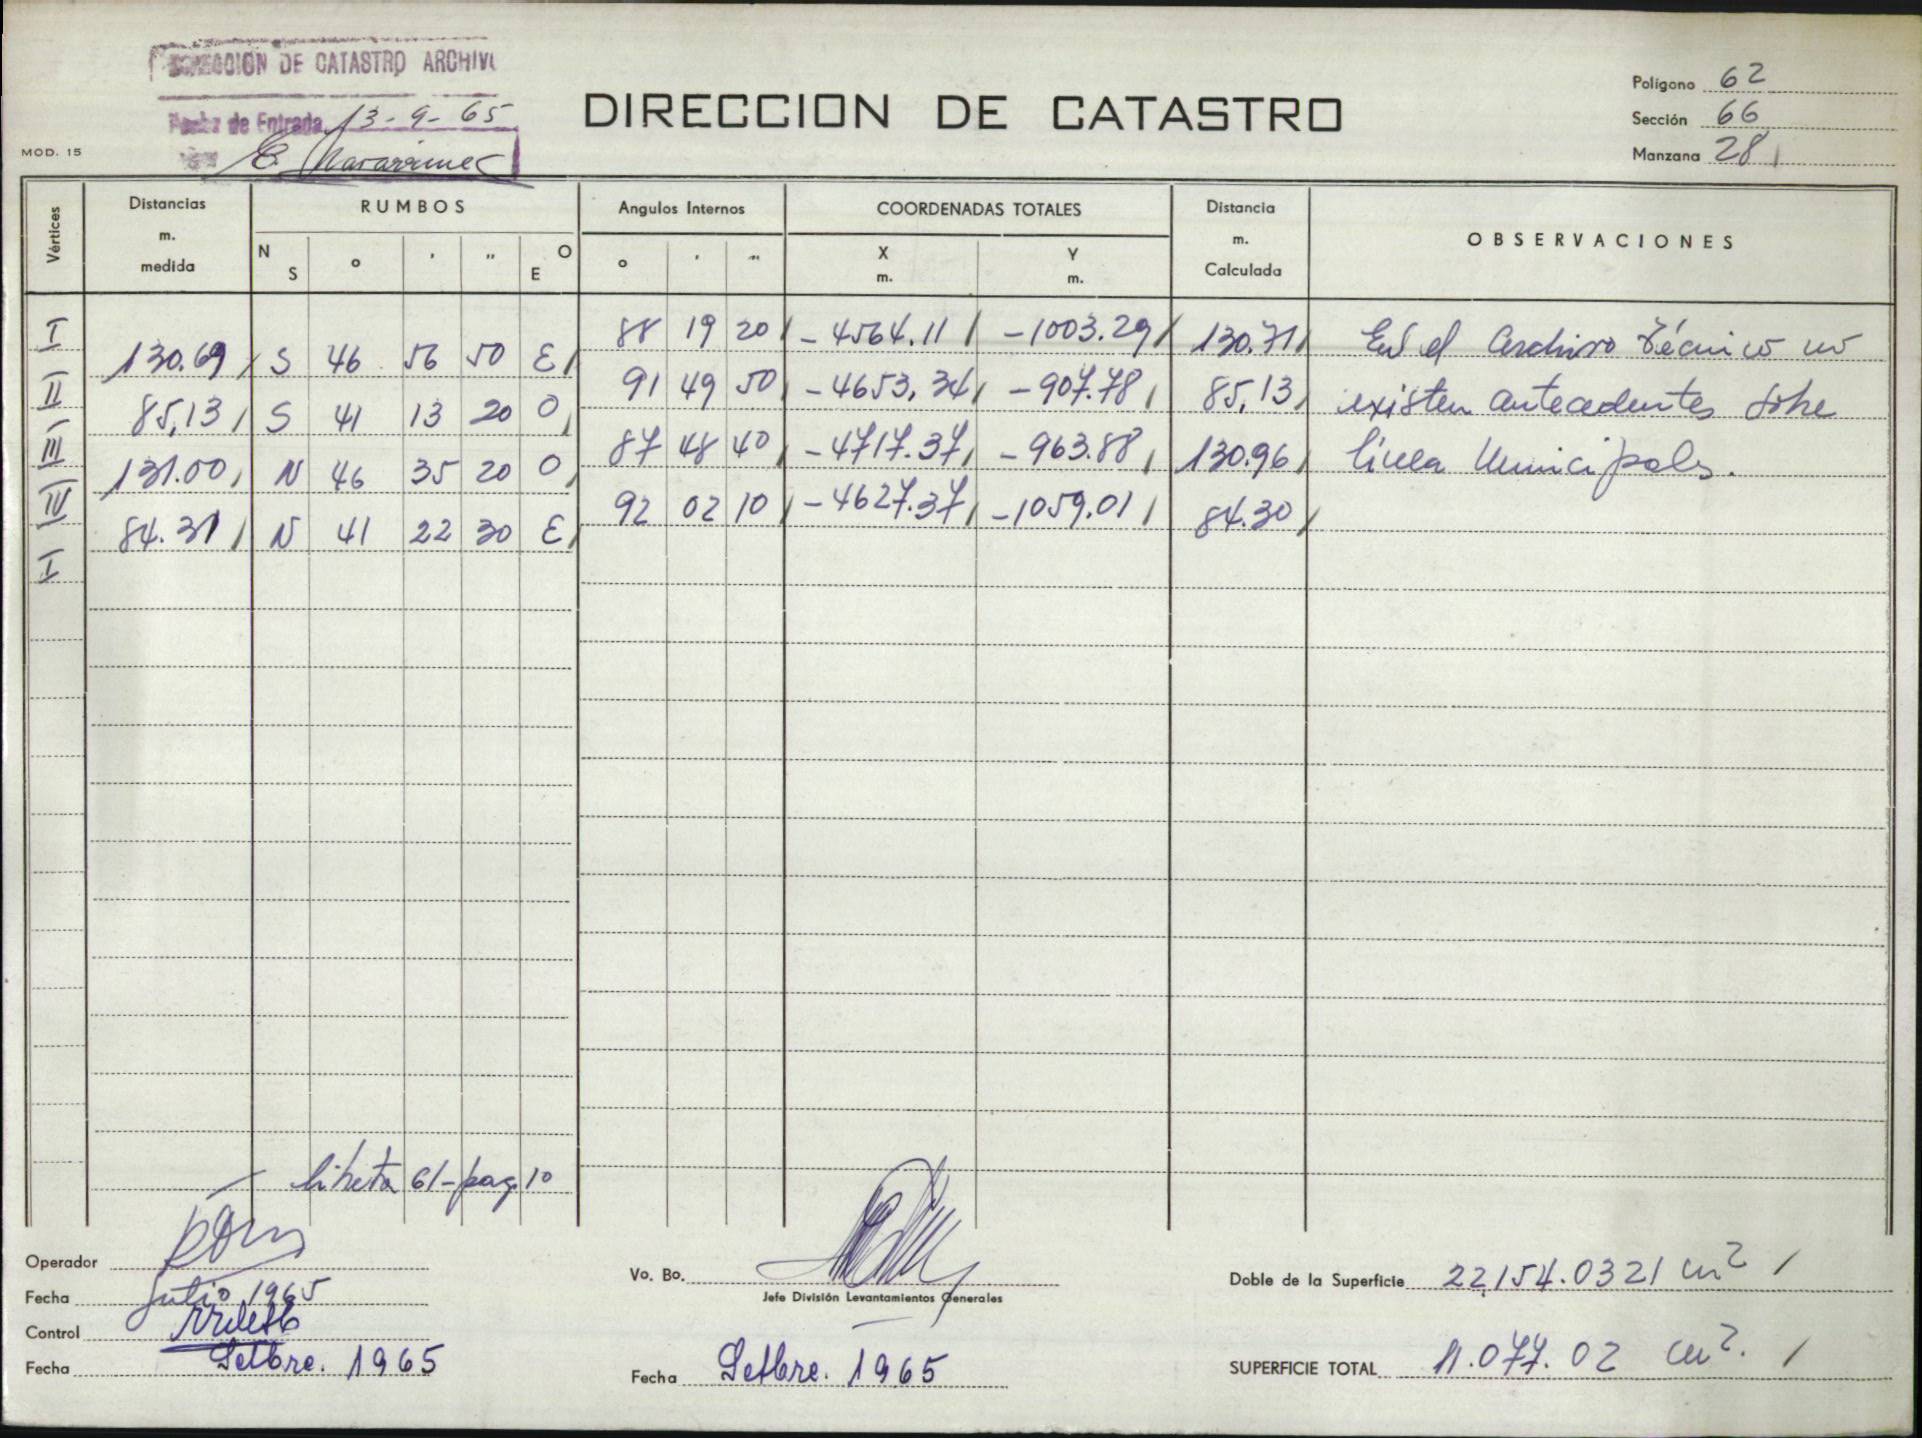 DIRECCION DE CATASTRO ARCHIVO
Fecha de Entrada 13-9-65
MOD. 15
DIRECCION DE CATASTRO
Polígono 62
Sección 66
Manzana 28
Vértices Distancias m. medida RUMBOS N S o ' " O E Angulos Internos o ' " COORDENADAS TOTALES X m. Y m. Distancia m. Calculada OBSERVACIONES
I 88 19 20 -4564.11 -1003.29 130.71 En el Archivo Técnico no
130.69 S 46 56 50 E
II 91 49 50 -4653,34 -907.78 85,13 existen antecedentes sobre
85,13 S 41 13 20 O
III 87 48 40 -4717.37 -963.88 130.96 línea Municipals.
131.00 N 46 35 20 O
IV 92 02 10 -4627.37 -1059.01 84.30
84.31 N 41 22 30 E
I
libreta 61-pag. 10
Operador
Fecha Julio 1965
Control
Fecha Setbre. 1965
Vo. Bo.
Jefe División Levantamientos Generales
Fecha Setbre. 1965
Doble de la Superficie 22,154.0321 m²
SUPERFICIE TOTAL 11.077.02 m².